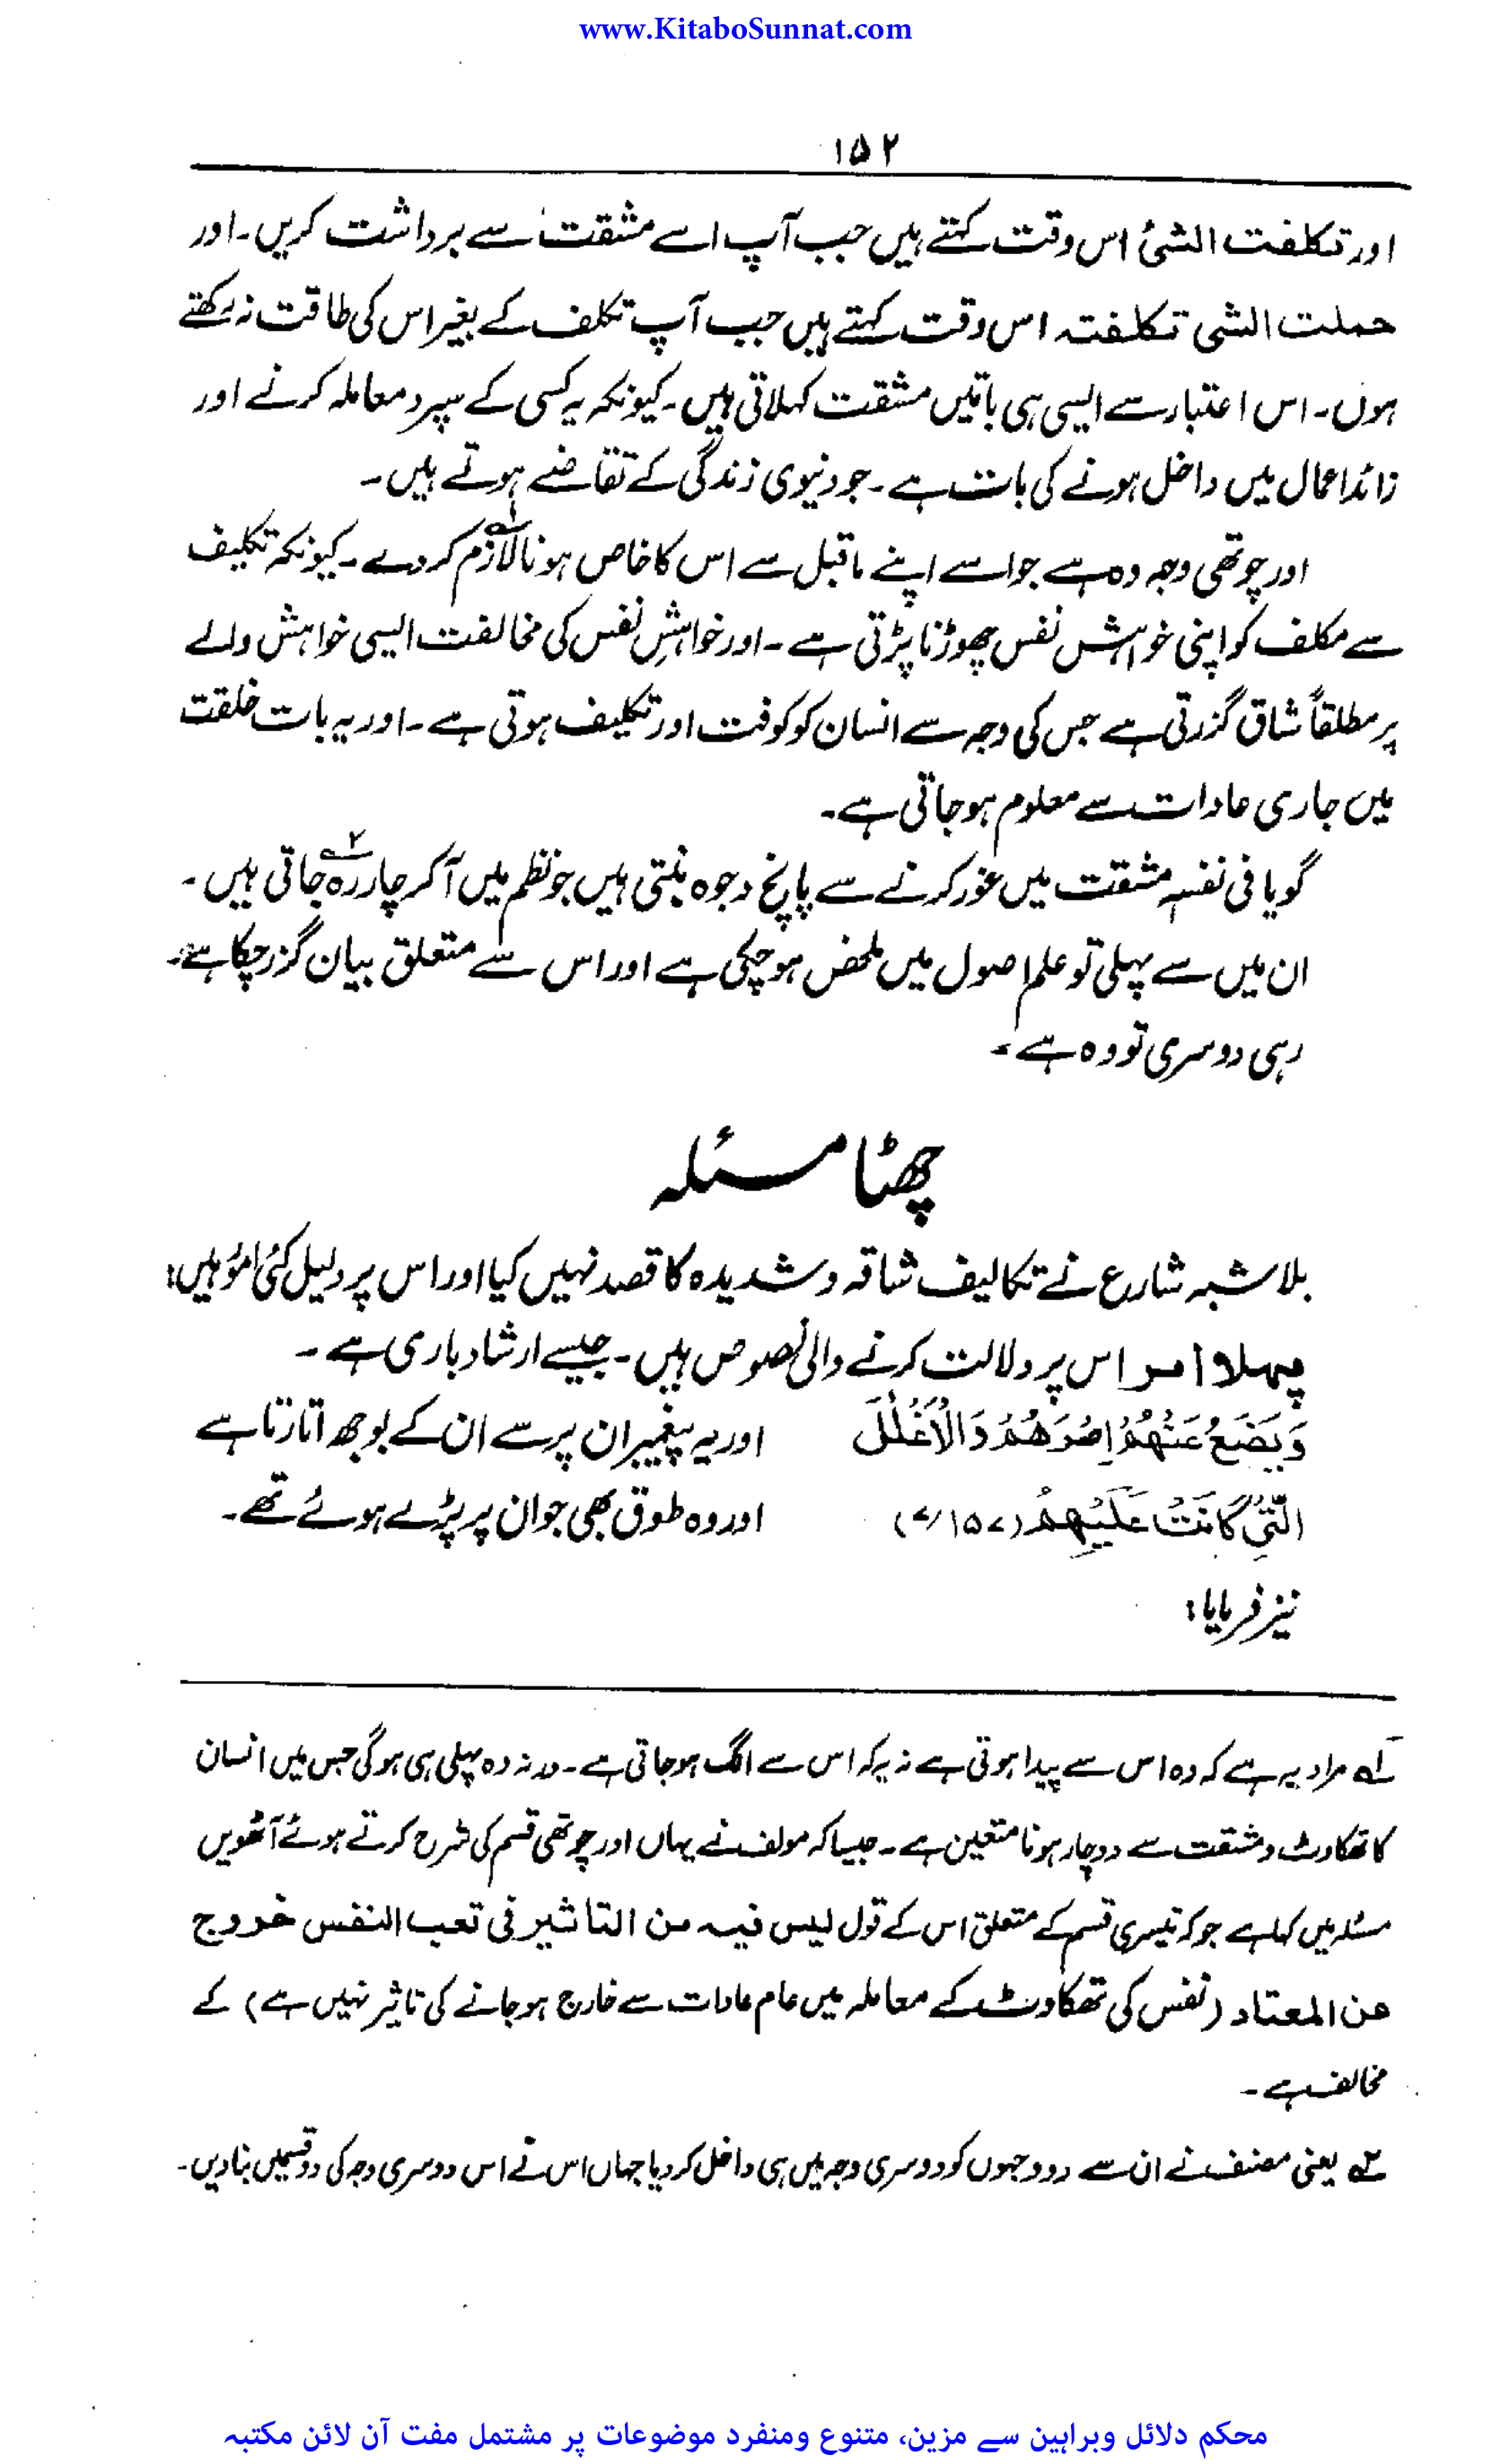 www.KitaboSunnat.com
۱۵۲
اور تکلفت الشئ اس وقت کہتے ہیں جب آپ اسے مشقت سے برداشت کریں۔ اور
حملت الشی تکلفتہ اس وقت کہتے ہیں جب آپ تکلف کے بغیر اس کی طاقت نہ رکھتے
ہوں۔ اس اعتبار سے ایسی ہی باتیں مشقت کہلاتی ہیں۔ کیونکہ یہ کسی کے سپرد معاملہ کرنے اور
زائد اعمال میں داخل ہونے کی بات ہے۔ جو دنیوی زندگی کے تقاضے ہوتے ہیں۔
اور چوتھی وجہ وہ ہے جو اسے اپنے ماقبل سے اس کا خاص ہونا لازم کر دے۔ کیونکہ تکلیف
سے مکلف کو اپنی خواہش نفس چھوڑنا پڑتی ہے۔ اور خواہشِ نفس کی مخالفت ایسی خواہش والے
پر مطلقاً شاق گزرتی ہے جس کی وجہ سے انسان کو کوفت اور تکلیف ہوتی ہے۔ اور یہ بات خلقت
میں جاری عادات سے معلوم ہو جاتی ہے۔
گویا فی نفسہٖ مشقت میں غور کرنے سے پانچ وجوہ بنتی ہیں جو نظم میں آ کر چار رہ۲ جاتی ہیں۔
ان میں سے پہلی تو علم اصول میں ملخص ہو چکی ہے اور اس سے متعلق بیان گزر چکا ہے۔
رہی دوسری تو وہ ہے۔
چھٹا مسئلہ
بلا شبہ شارع نے تکالیف شاقہ و شدیدہ کا قصد نہیں کیا اور اس پر دلیل کئی امور ہیں:
پہلا امر اس پر دلالت کرنے والی نصوص ہیں۔ جیسے ارشاد باری ہے۔
وَیَضَعُ عَنْهُمْ اِصْرَهُمْ وَالْاَغْلٰلَ اور یہ پیغمبر ان پر سے ان کے بوجھ اتارتا ہے
الَّتِیْ کَانَتْ عَلَیْهِمْ (۷/۱۵۷) اور وہ طوق بھی جو ان پر پڑے ہوئے تھے۔
نیز فرمایا:
۱ مراد یہ ہے کہ وہ اس سے پیدا ہوتی ہے نہ یہ کہ اس سے الگ ہو جاتی ہے۔ ورنہ وہ پہلی ہی ہوگی جس میں انسان
کا تھکاوٹ و مشقت سے دوچار ہونا متعین ہے۔ جیسا کہ مولف نے یہاں اور چوتھی قسم کی شرح کرتے ہوئے آٹھویں
مسئلہ میں کہا ہے جو کہ تیسری قسم کے متعلق اس کے قول لیس فیہ من التاثیر فی تعب النفس خروج
عن المعتاد (نفس کی تھکاوٹ کے معاملہ میں عام عادات سے خارج ہو جانے کی تاثیر نہیں ہے) کے
مخالف ہے۔
۲ یعنی مصنف نے ان سے دو وجہوں کو دوسری وجہ میں ہی داخل کر دیا جہاں اس نے اس دوسری وجہ کی دو قسمیں بنا دیں۔
محکم دلائل وبراہین سے مزین، متنوع ومنفرد موضوعات پر مشتمل مفت آن لائن مکتبہ